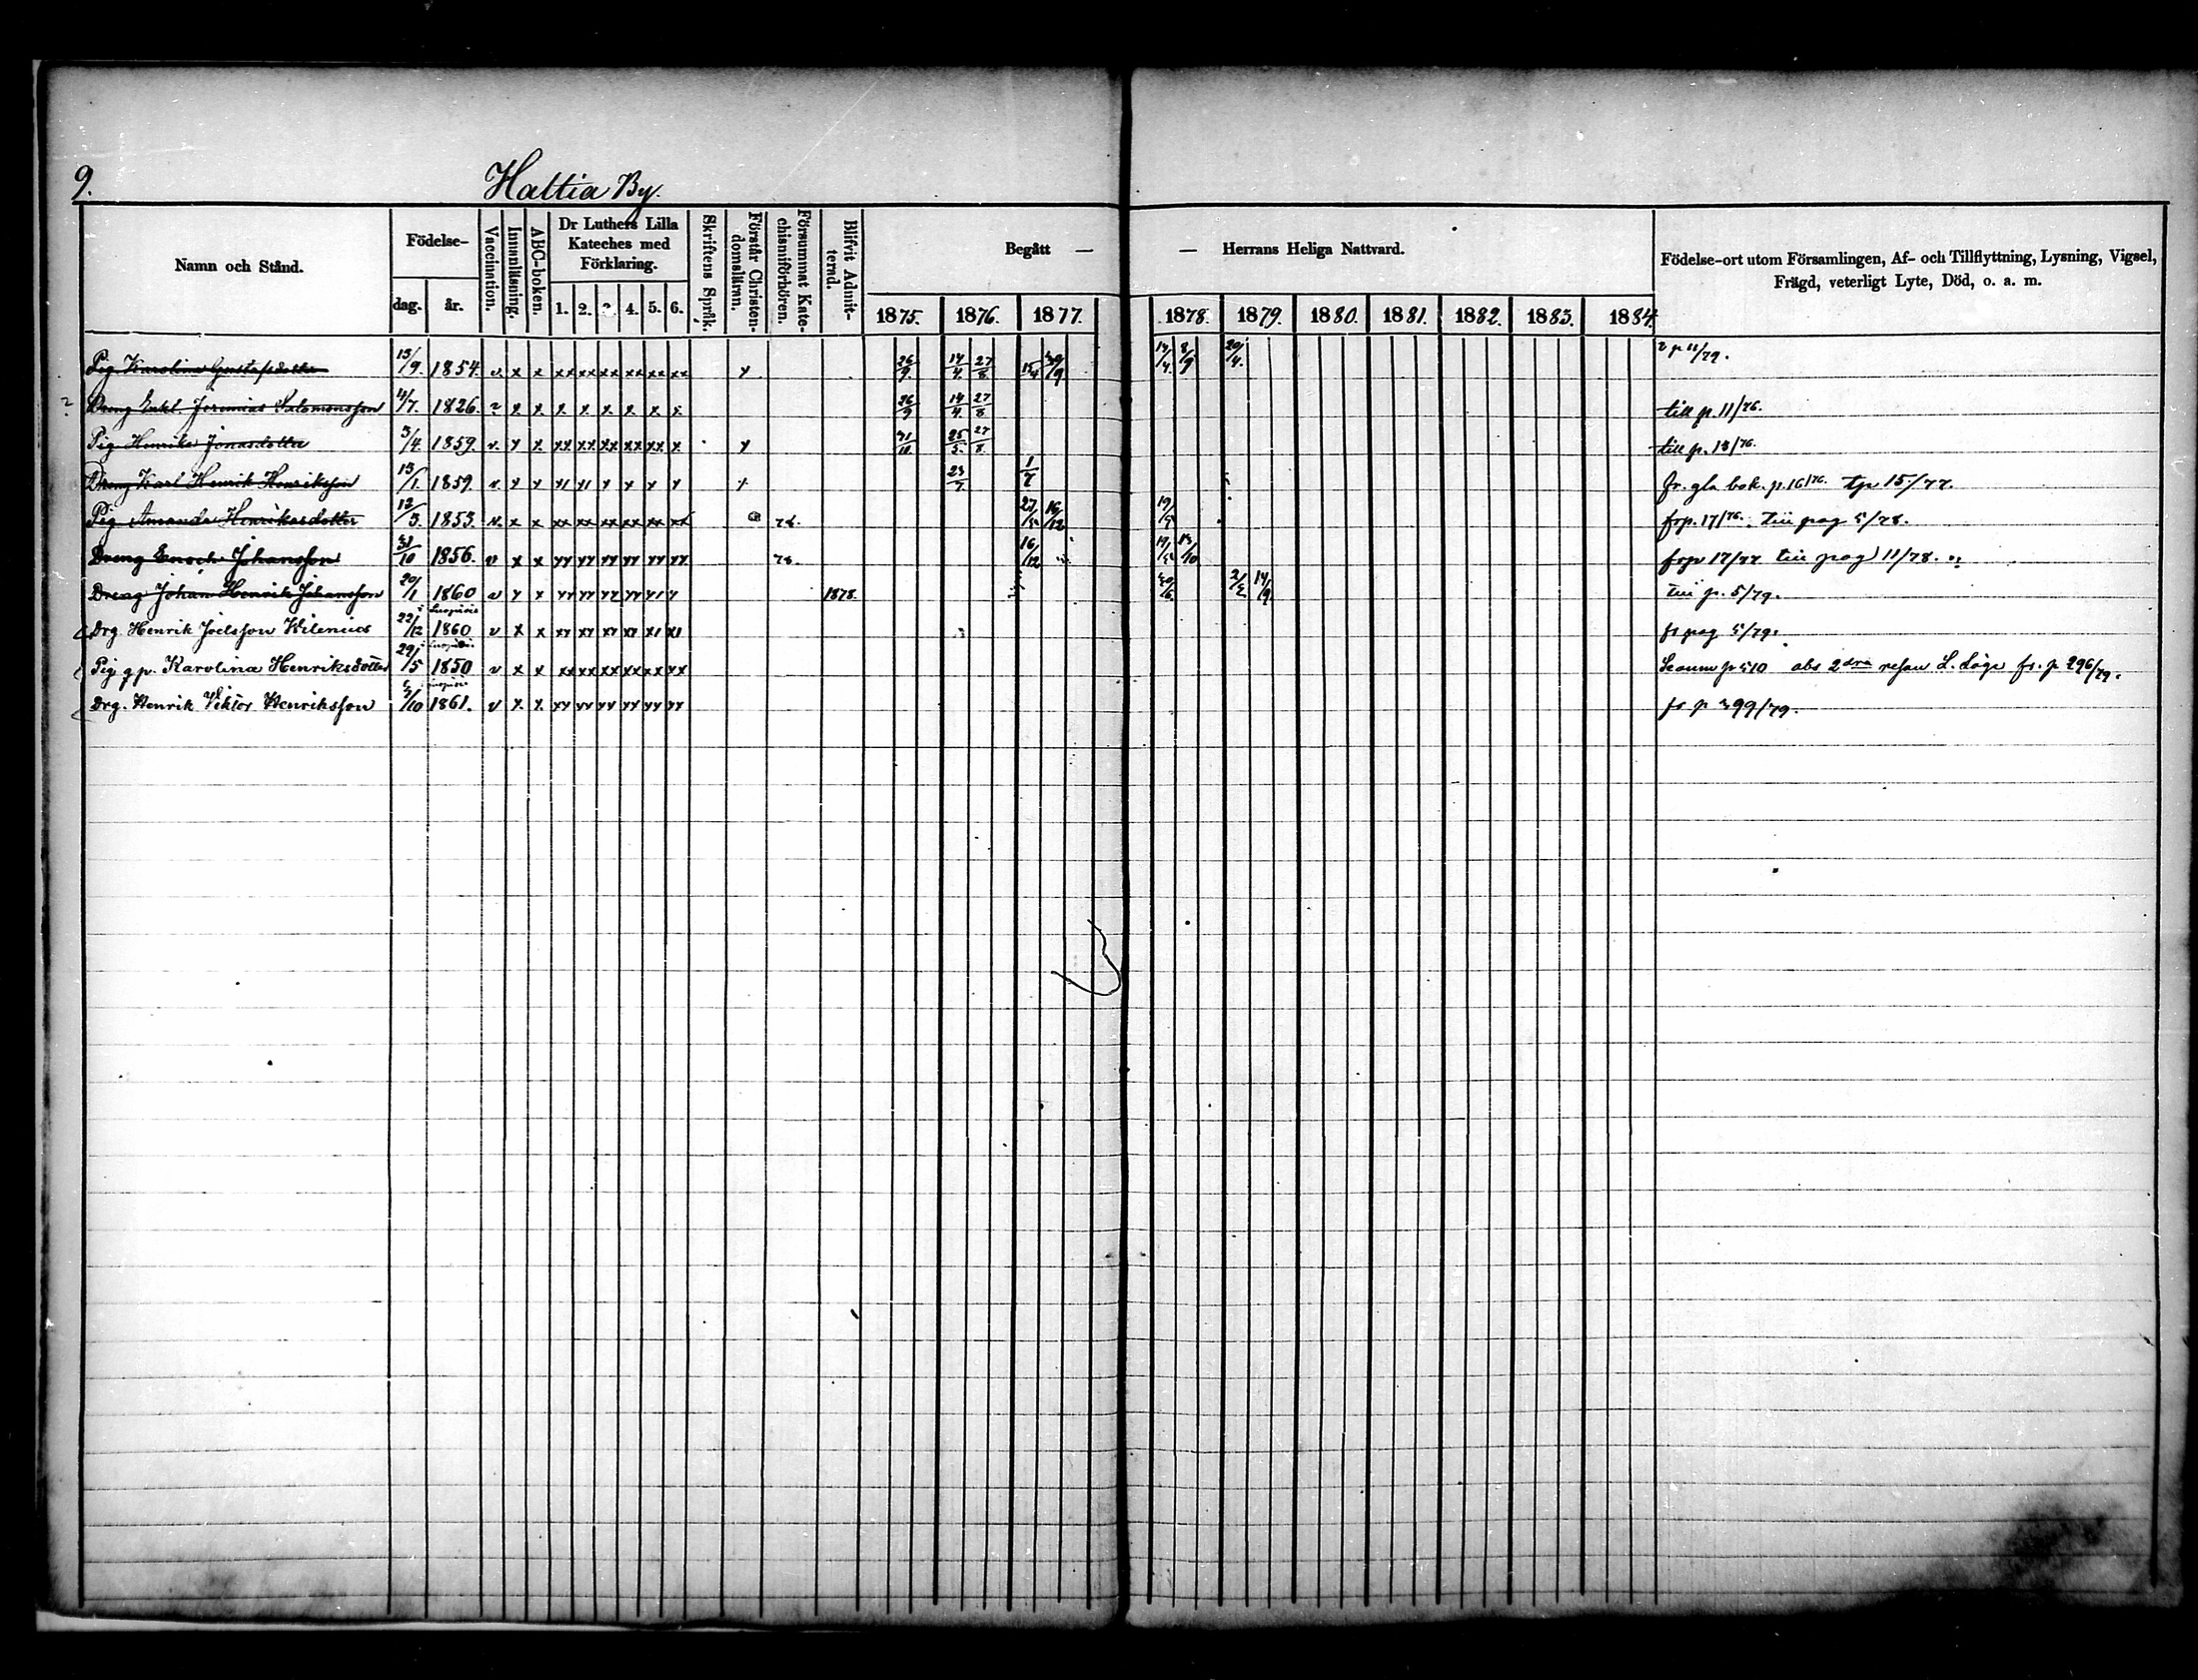 9.
Hattia By.
Namn och Stånd.
Födelse-
dag. år.
Vaccination.
Innanläsning.
ABC-boken.
Dr Luthers Lilla
Kateches med
Förklaring.
1. 2. 3. 4. 5. 6.
Skriftens Språk.
Förstår Christen-
domsläran.
Försummat Kate-
chismiförhören.
Blifvit Admit-
terad.
Begått — — Herrans Heliga Nattvard.
1875. 1876. 1877. 1878. 1879. 1880. 1881. 1882. 1883. 1884.
Födelse-ort utom Församlingen, Af- och Tillflyttning, Lysning, Vigsel,
Frägd, veterligt Lyte, Död, o. a. m.
Pig. Karolina Gustafsdotter 13/9. 1854. v. x x xx xx xx xx xx xx y 26/9. 14/4. 27/8 20/4. p 11/79.
Dreng Enkl. Jeremias Salomonsson 1826. ? x x x x x x x x 26/9 14/4 27/8 till p. 11/76.
Pig Henrika Jonasdotter 3/4. 1859. v. y x xx xx xx xx xx x y 31/10. 25/5. 27/8. till p. 13/76.
Dreng Karl Henrik Henriksson 13/1. 1859. v. y y 23/7 1/7 fr. gla bok. p. 16/76. tp 15/77.
Pig Amanda Henriksdotter 12/3. 1853. v. x x xx xx xx xx xx xx 16/12 frp. 17/76. till pag 5/78.
Dreng Enoch Johansson 31/10 1856. v x x yy yy yy yy yy yy 16/12 frp 17/77 till pag 11/78.
Dreng Johan Henrik Johansson 20/1 1860 v y x 1878. 30/6. 2/2 14/9 till p. 5/79.
Drg. Henrik Joelsson Kilenius 22/12 1860 v x x fr pag 5/79.
Pig gp. Karolina Henriksdotter 29/5 1850 v x x xx xx xx xx xx xx abs 2dra resan L. Läge fr. p 296/79.
Drg. Henrik Viktor Henriksson /10 1861. v x x yy yy yy yy yy yy fr p 399/79.